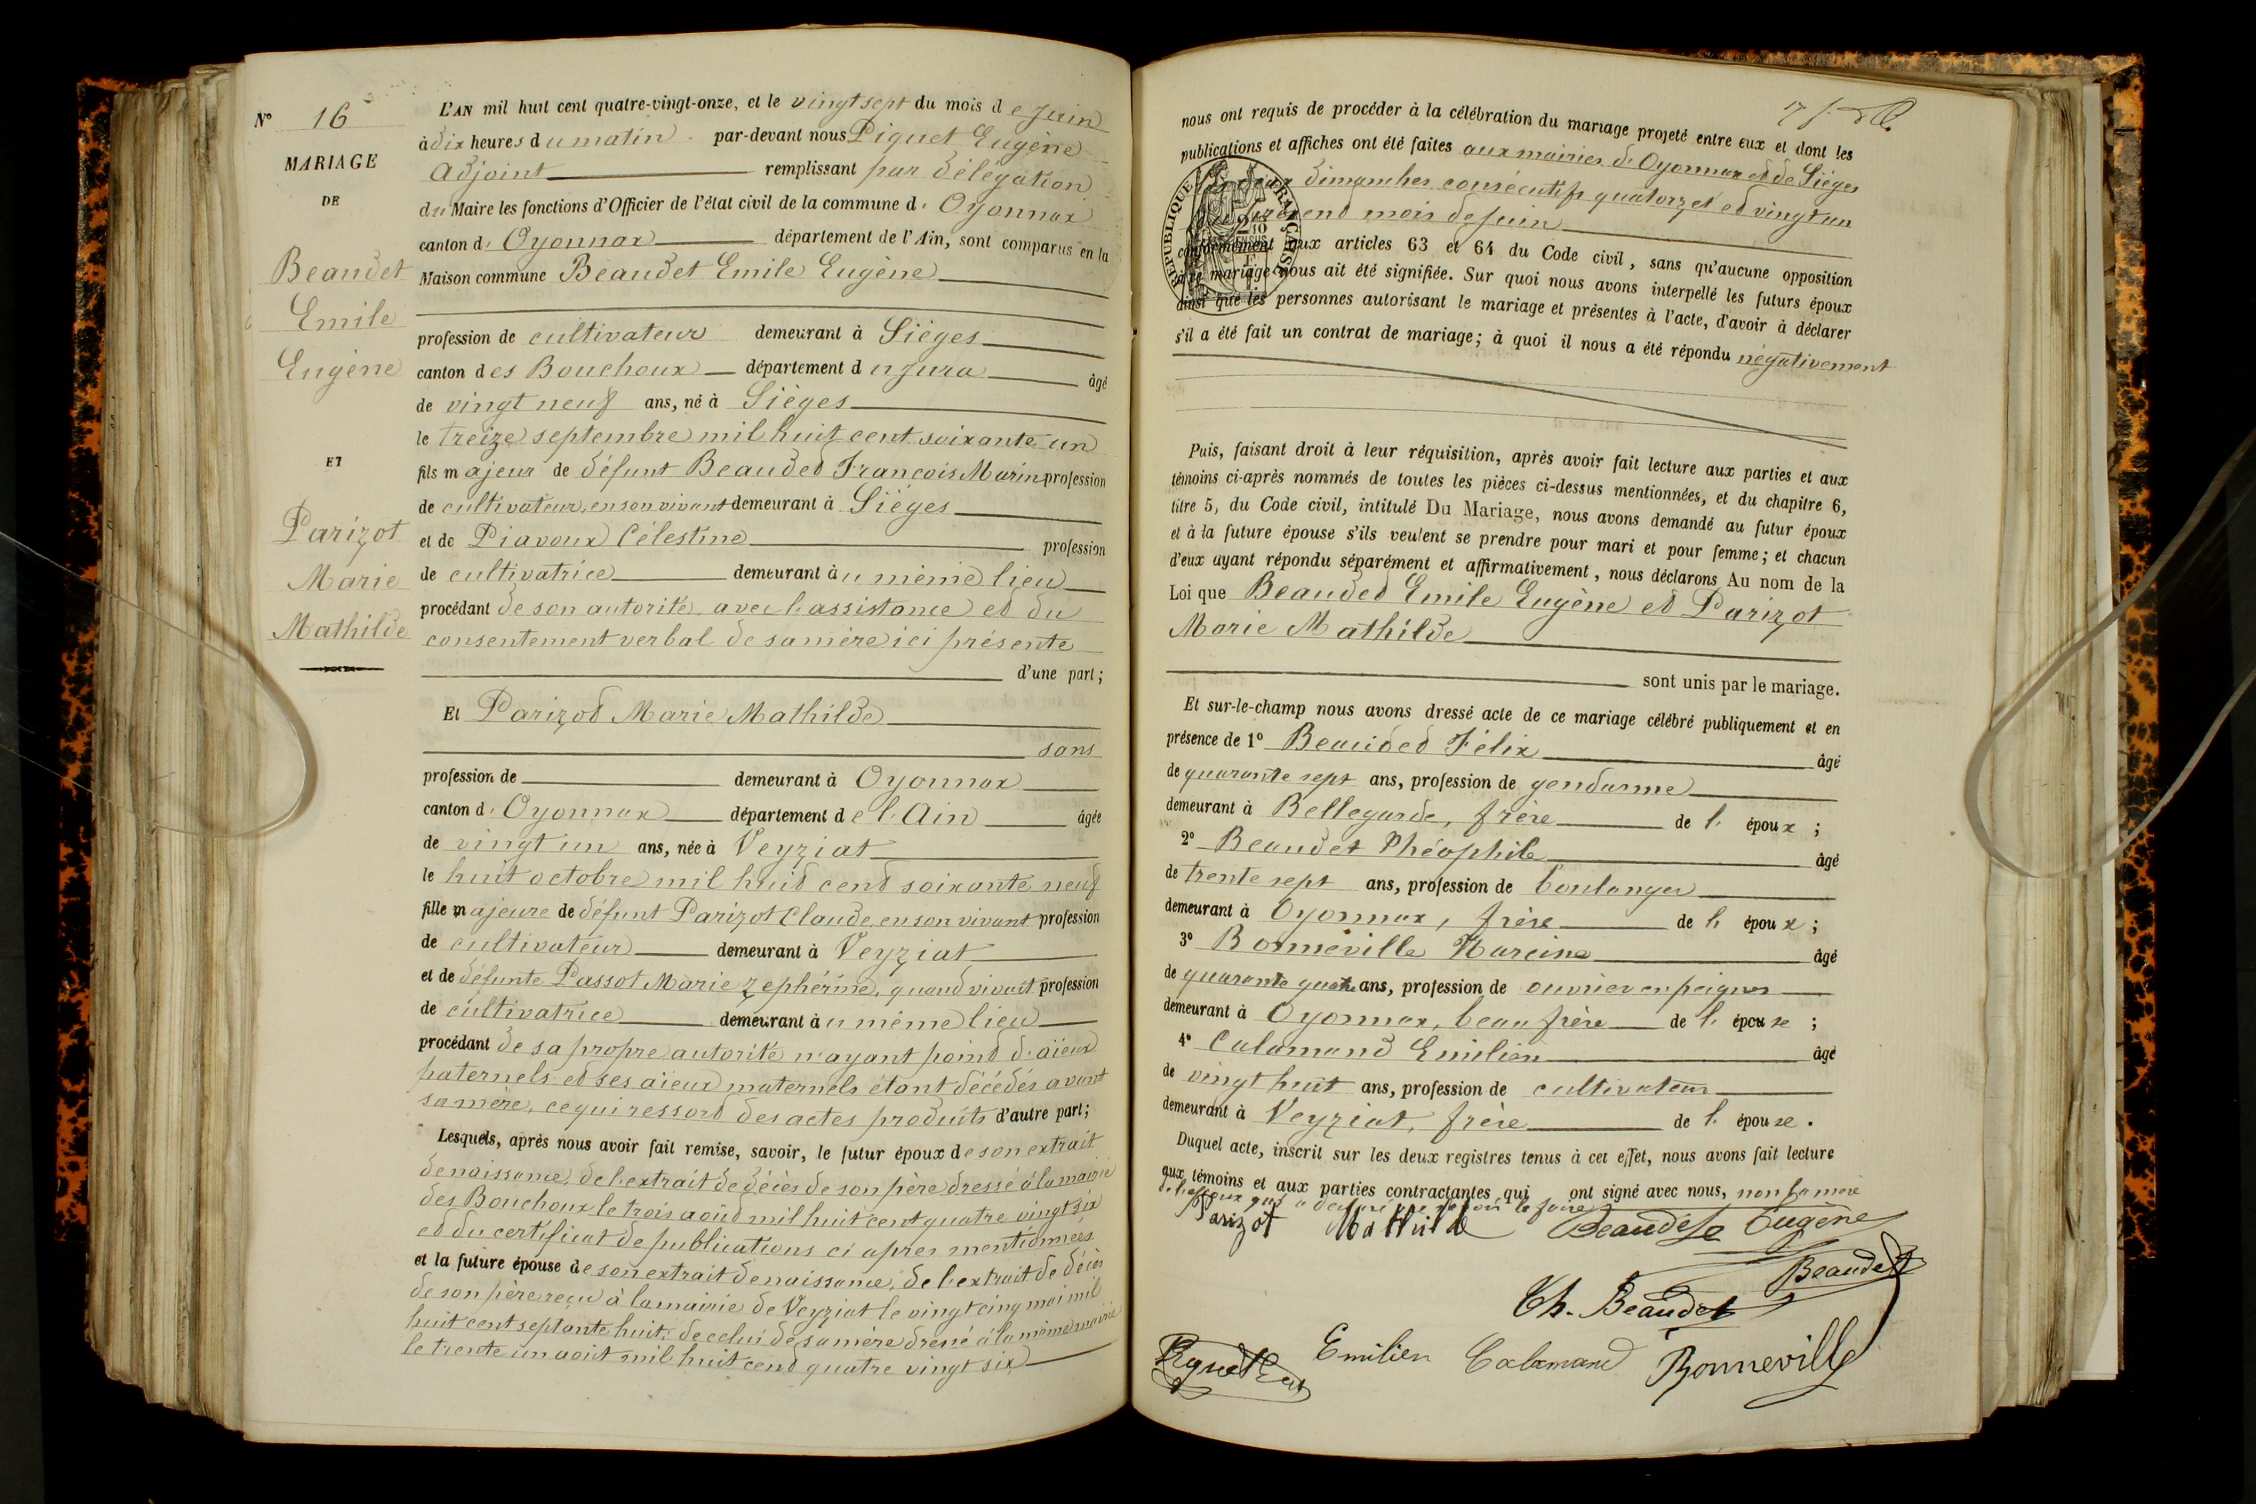 N° 16
MARIAGE
DE
Beaudet
Emile
Eugène
ET
Parizot
Marie
Mathilde
L'AN mil huit cent quatre-vingt-onze, et le vingt sept du mois de juin
à dix heures du matin par-devant nous Piquet Eugène
adjoint remplissant par délégation
du Maire les fonctions d'Officier de l'état civil de la commune d' Oyonnax
canton d' Oyonnax département de l'Ain, sont comparus en la
Maison commune Beaudet Emile Eugène
profession de cultivateur demeurant à Siéges
canton des Bouchoux département du Jura âgé
de vingt neuf ans, né à Siéges
le treize septembre mil huit cent soixante un
fils majeur de défunt Beaudet François Marin profession
de cultivateur, en son vivant demeurant à Siéges
et de Piavoux Célestine profession
de cultivatrice demeurant au même lieu
procédant de son autorité avec l'assistance et du
consentement verbal de sa mère ici présente
d'une part;
Et Parizot Marie Mathilde
sans
profession de demeurant à Oyonnax
canton d' Oyonnax département de l'Ain âgée
de vingt un ans, née à Veyziat
le huit octobre mil huit cent soixante neuf
fille majeure de défunt Parizot Claude, en son vivant profession
de cultivateur demeurant à Veyziat
et de défunte Passot Marie Zephérine, quand vivait profession
de cultivatrice demeurant au même lieu
procédant de sa propre autorité n'ayant point d'aïeux
paternels et ses aïeux maternels étant décédés avant
sa mère, ce qui ressort des actes produits d'autre part;
Lesquels, après nous avoir fait remise, savoir, le futur époux de son extrait
de naissance, de l'extrait de décès de son père dressé à la mairie
des Bouchoux le trois août mil huit cent quatre vingt six
et du certificat de publications ci après mentionnées
et la future épouse de son extrait de naissance, de l'extrait de décès
de son père reçu à la mairie de Veyziat le vingt cinq mai mil
huit cent septante huit, de celui de sa mère dressé à la même mairie
le trente un août mil huit cent quatre vingt six
nous ont requis de procéder à la célébration du mariage projeté entre eux et dont les
publications et affiches ont été faites aux mairies d'Oyonnax et de Siéges
dimanches consécutifs quatorze et vingt un
mois de juin
RÉPUBLIQUE FRANÇAISE
conformément aux articles 63 et 64 du Code civil, sans qu'aucune opposition
mariage nous ait été signifiée. Sur quoi nous avons interpellé les futurs époux
ainsi que les personnes autorisant le mariage et présentes à l'acte, d'avoir à déclarer
s'il a été fait un contrat de mariage; à quoi il nous a été répondu négativement
Puis, faisant droit à leur réquisition, après avoir fait lecture aux parties et aux
témoins ci-après nommés de toutes les pièces ci-dessus mentionnées, et du chapitre 6,
titre 5, du Code civil, intitulé Du Mariage, nous avons demandé au futur époux
et à la future épouse s'ils veulent se prendre pour mari et pour femme; et chacun
d'eux ayant répondu séparément et affirmativement, nous déclarons Au nom de la
Loi que Beaudet Emile Eugène et Parizot
Marie Mathilde
sont unis par le mariage.
Et sur-le-champ nous avons dressé acte de ce mariage célébré publiquement et en
présence de 1° Beaudet Félix âgé
de quarante sept ans, profession de gendarme
demeurant à Bellegarde, frère de l' époux;
2° Beaudet Théophile âgé
de trente sept ans, profession de boulanger
demeurant à Oyonnax, frère de l' époux;
3° Bonneville Narcisse âgé
de quarante quatre ans, profession de ouvrier en peignes
demeurant à Oyonnax, beau frère de l' épouse;
4° Calamand Emilien âgé
de vingt huit ans, profession de cultivateur
demeurant à Veyziat, frère de l' épouse.
Duquel acte, inscrit sur les deux registres tenus à cet effet, nous avons fait lecture
aux témoins et aux parties contractantes qui ont signé avec nous, non la mère
de l'époux qui a déclaré ne savoir le faire
Parizot Mathilde Beaudet Eugène
Beaudet
Th. Beaudet
Emilien Calamand Bonneville